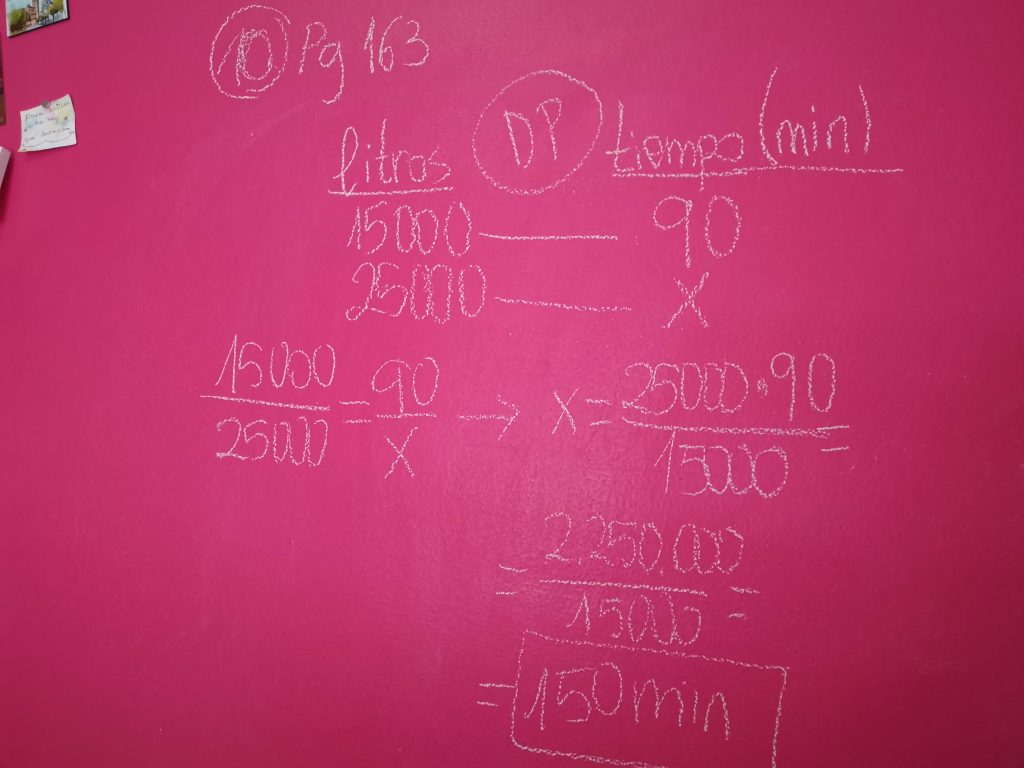 10 Pg 163
litros DP tiempo (min)
15000 — 90
25000 — X
15000/25000 = 90/X → X = 25000·90/15000 =
= 2.250.000/15000 =
= 150 min